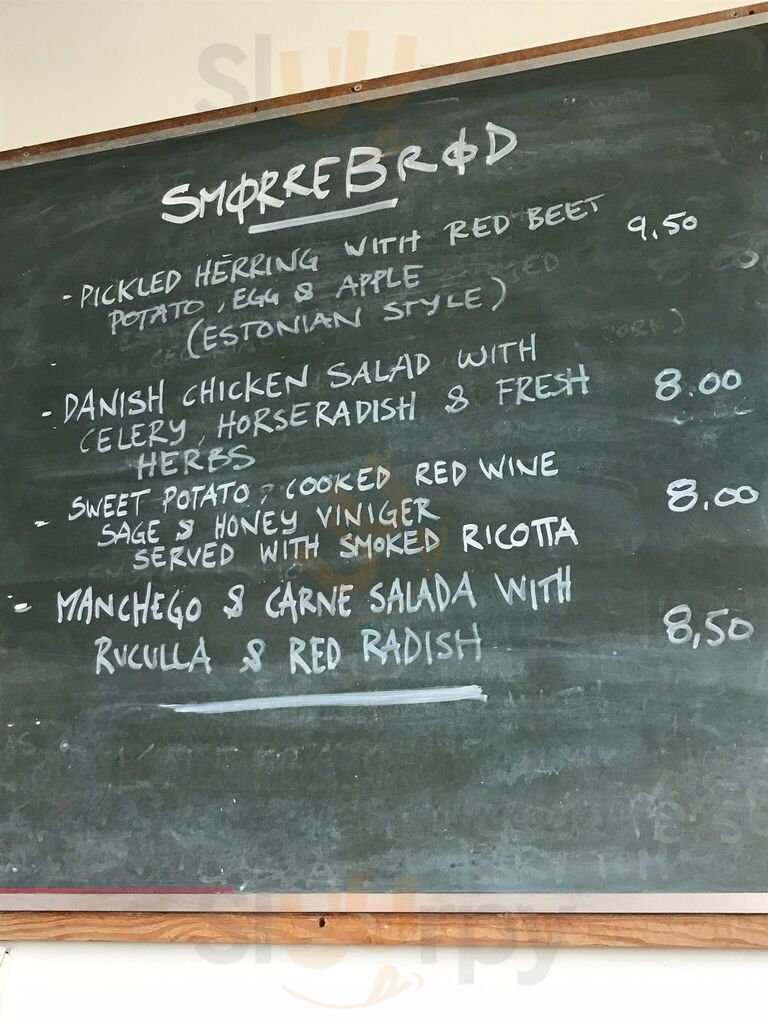 SMØRREBRØD
- PICKLED HERRING WITH RED BEET 9.50
POTATO, EGG & APPLE
(ESTONIAN STYLE)
- DANISH CHICKEN SALAD WITH
CELERY, HORSERADISH & FRESH 8.00
HERBS
- SWEET POTATO, COOKED RED WINE 8.00
SAGE & HONEY VINIGER
SERVED WITH SMOKED RICOTTA
- MANCHEGO & CARNE SALADA WITH
RUCULLA & RED RADISH 8,50